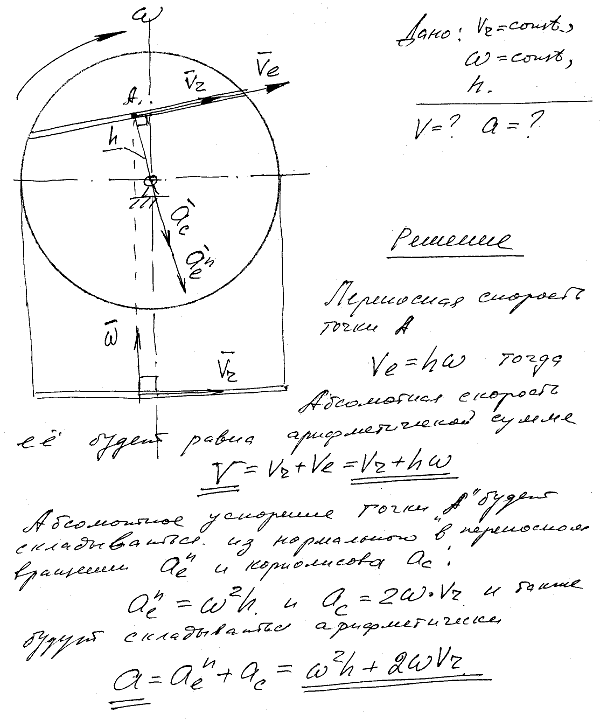 ω
Дано: Vr=const,
ω=const,
h.
V=? a=?
V̄r V̄e
A
h
āc
āeⁿ
Решение
Переносная скорость
точки A
Ve=hω тогда
Абсолютная скорость
её будет равна арифметической сумме
V=Vr+Ve=Vr+hω
ω̄
V̄r
Абсолютное ускорение точки "A" будет
складываться из нормального в переносном
вращении aeⁿ и кориолисова ac:
aeⁿ=ω²h и ac=2ω·Vr и также
будут складываться арифметически
a=aeⁿ+ac=ω²h+2ωVr